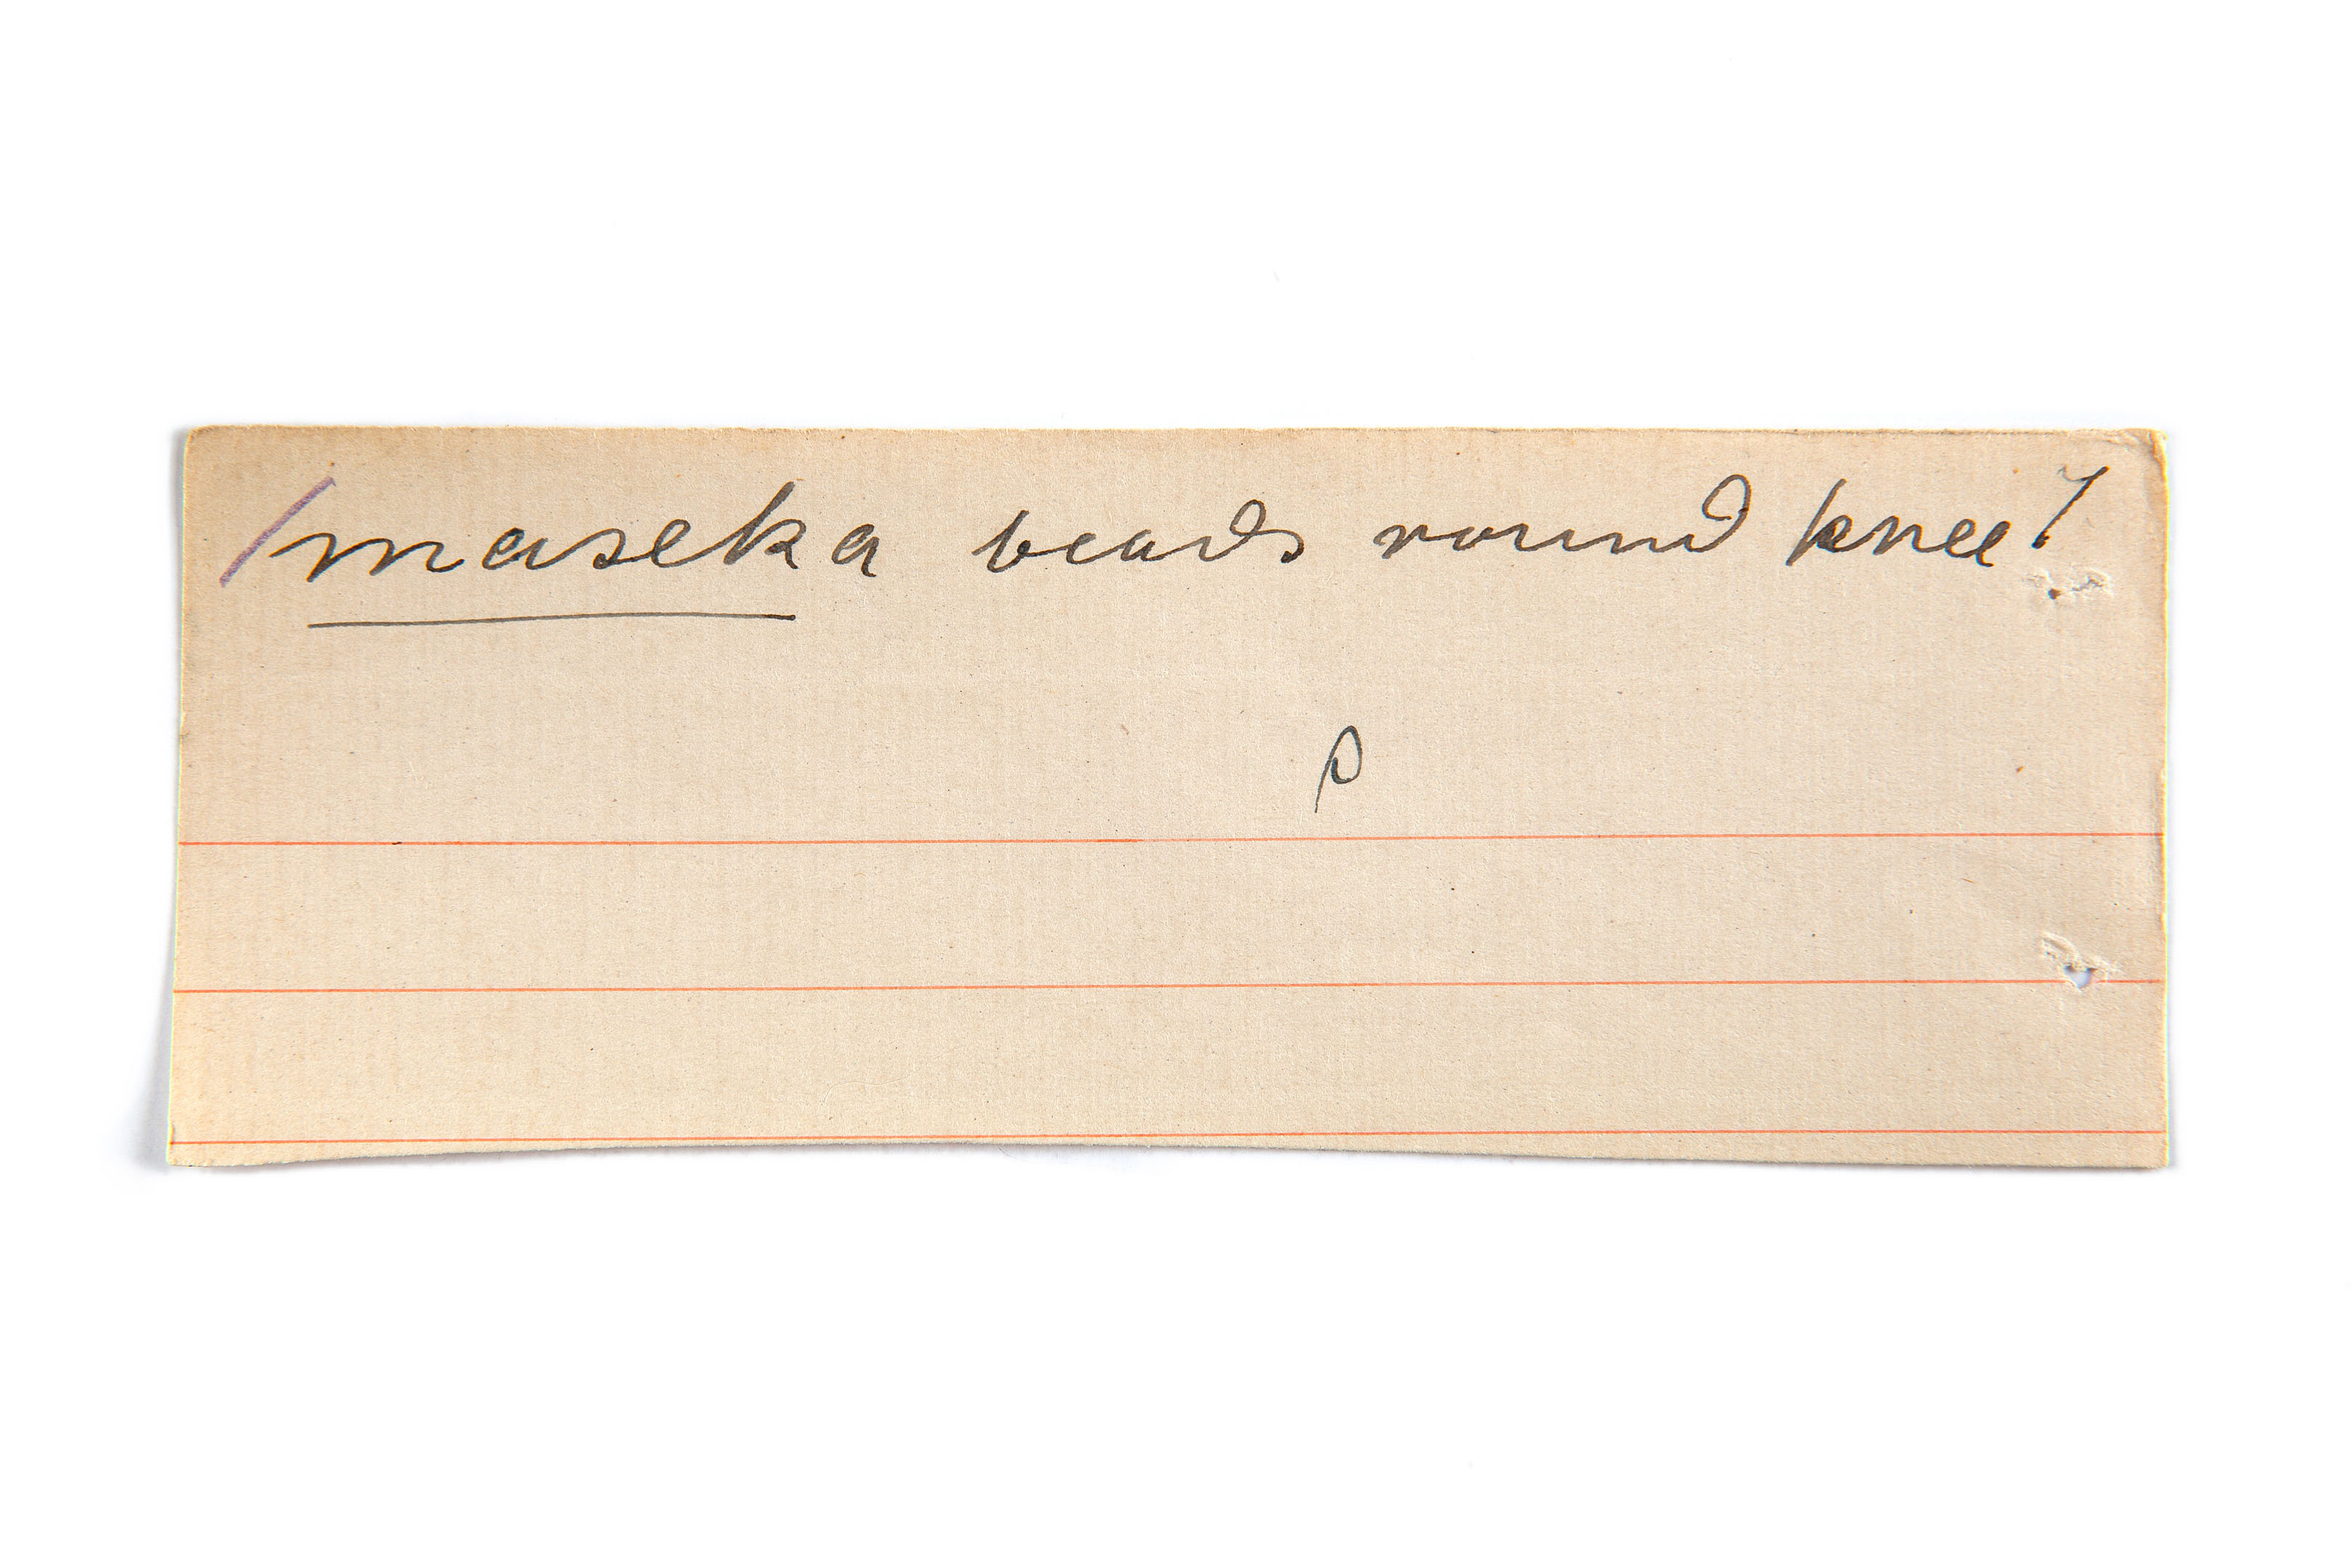 maseka beads round knee 7
P